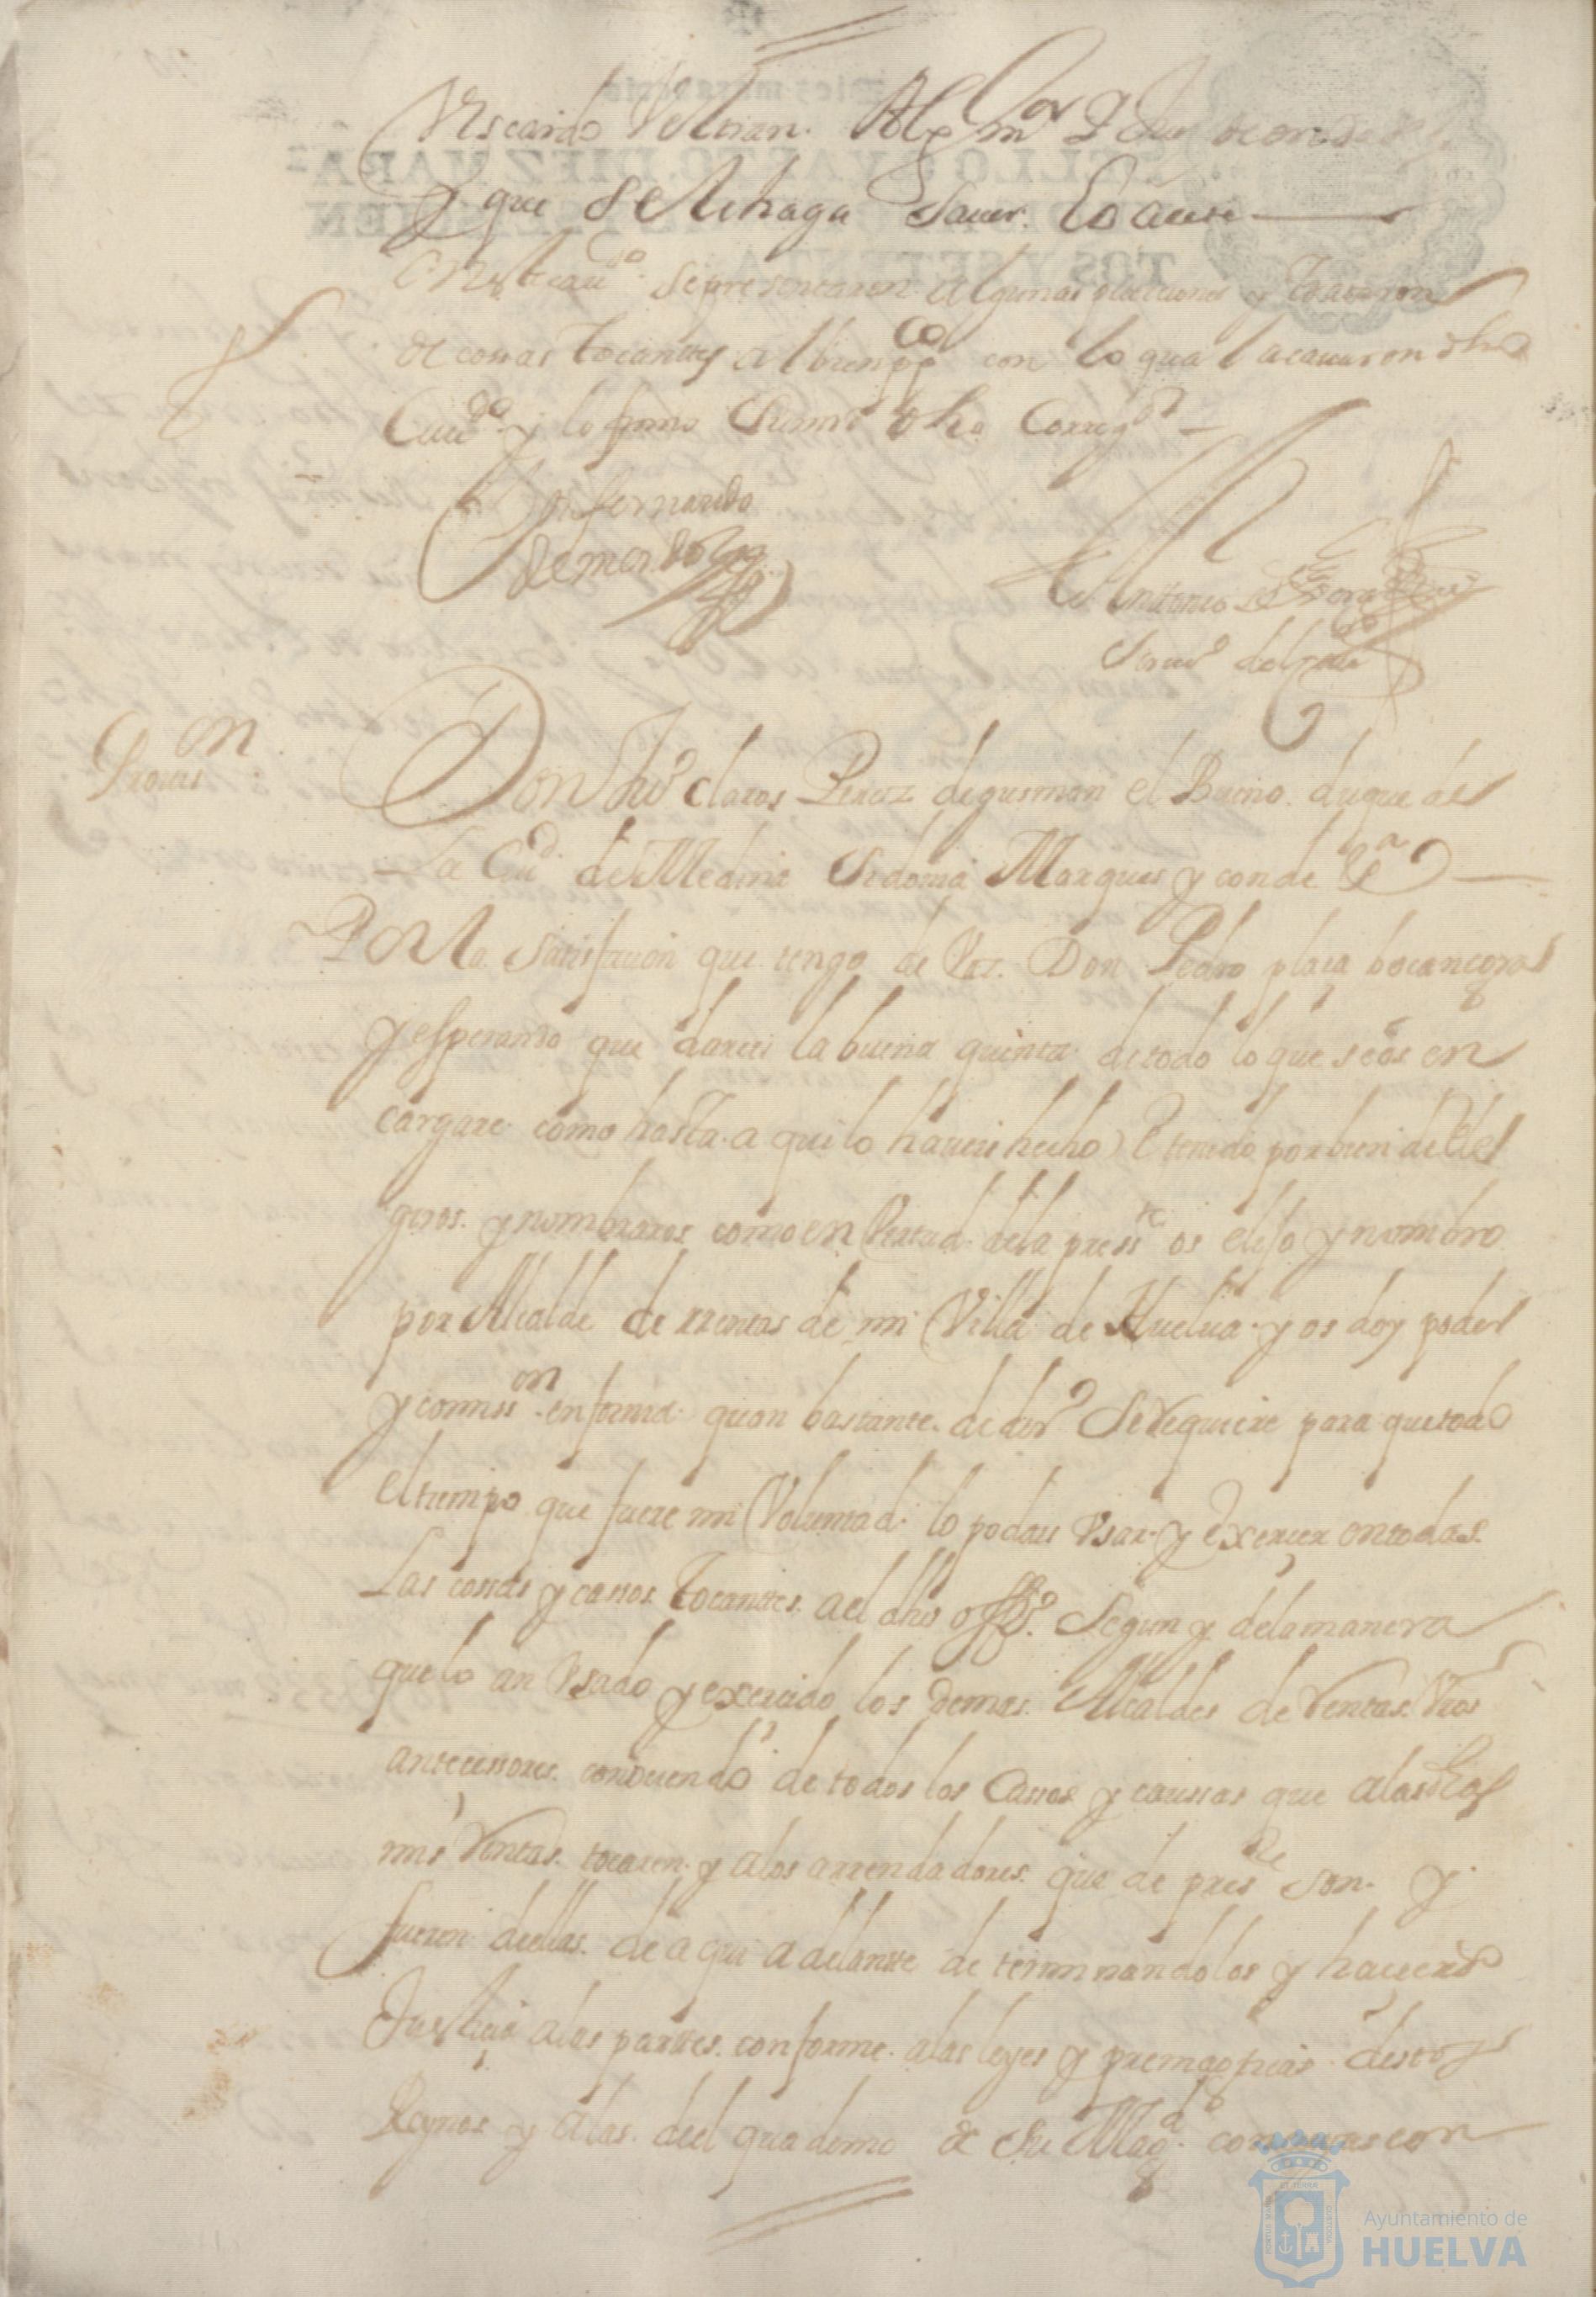 que se le haga saver lo acete
En este cavdo. se presentaron algunas peticiones y trataron
de cossas tocantes al bien ppco con lo qual acavaron dho
Cavdo. y lo firmo Su md dho Corregor
Don fernando
de mendoza
Antonio de
Scrivo del cavdo
Provisson
Don Juo claros Perez de gusman el Bueno duque de
La Ciud de Medina Sidonia Marques y conde Ea
Por la satisfacion que tengo de Vos Don Pedro plaça bocanegra
y esperando que dareis la buena quenta de todo lo que se os en
cargare como hasta aqui lo haveis hecho E tenido por bien de Ele
giros y nombraros como en Virtud de la presste os elijo y nombro
por Alcalde de rrentas de mi Villa de Huelva y os doy poder
y comisson en forma quan bastante de dro Se Requiere para que todo
el tiempo que fuere mi Voluntad lo podais Vsar y Exerçer en todas
Las cossas y cassos Tocantes a el dho offo. Segun y de la manera
que lo an Vsado y exerçido los demas Alcaldes de Rentas Vros
antecessores conociendo de todos los Cassos y caussas que a las dhas
mis Rentas tocaren y a los arrendadores que de preste son y
fueren dellas de aqui adelante determinandolos y haçiendo
Justiçia a las partes conforme a las leyes y premacticas destos
Reynos y a las del quaderno de Su Magd. con
Ayuntamiento de
HUELVA